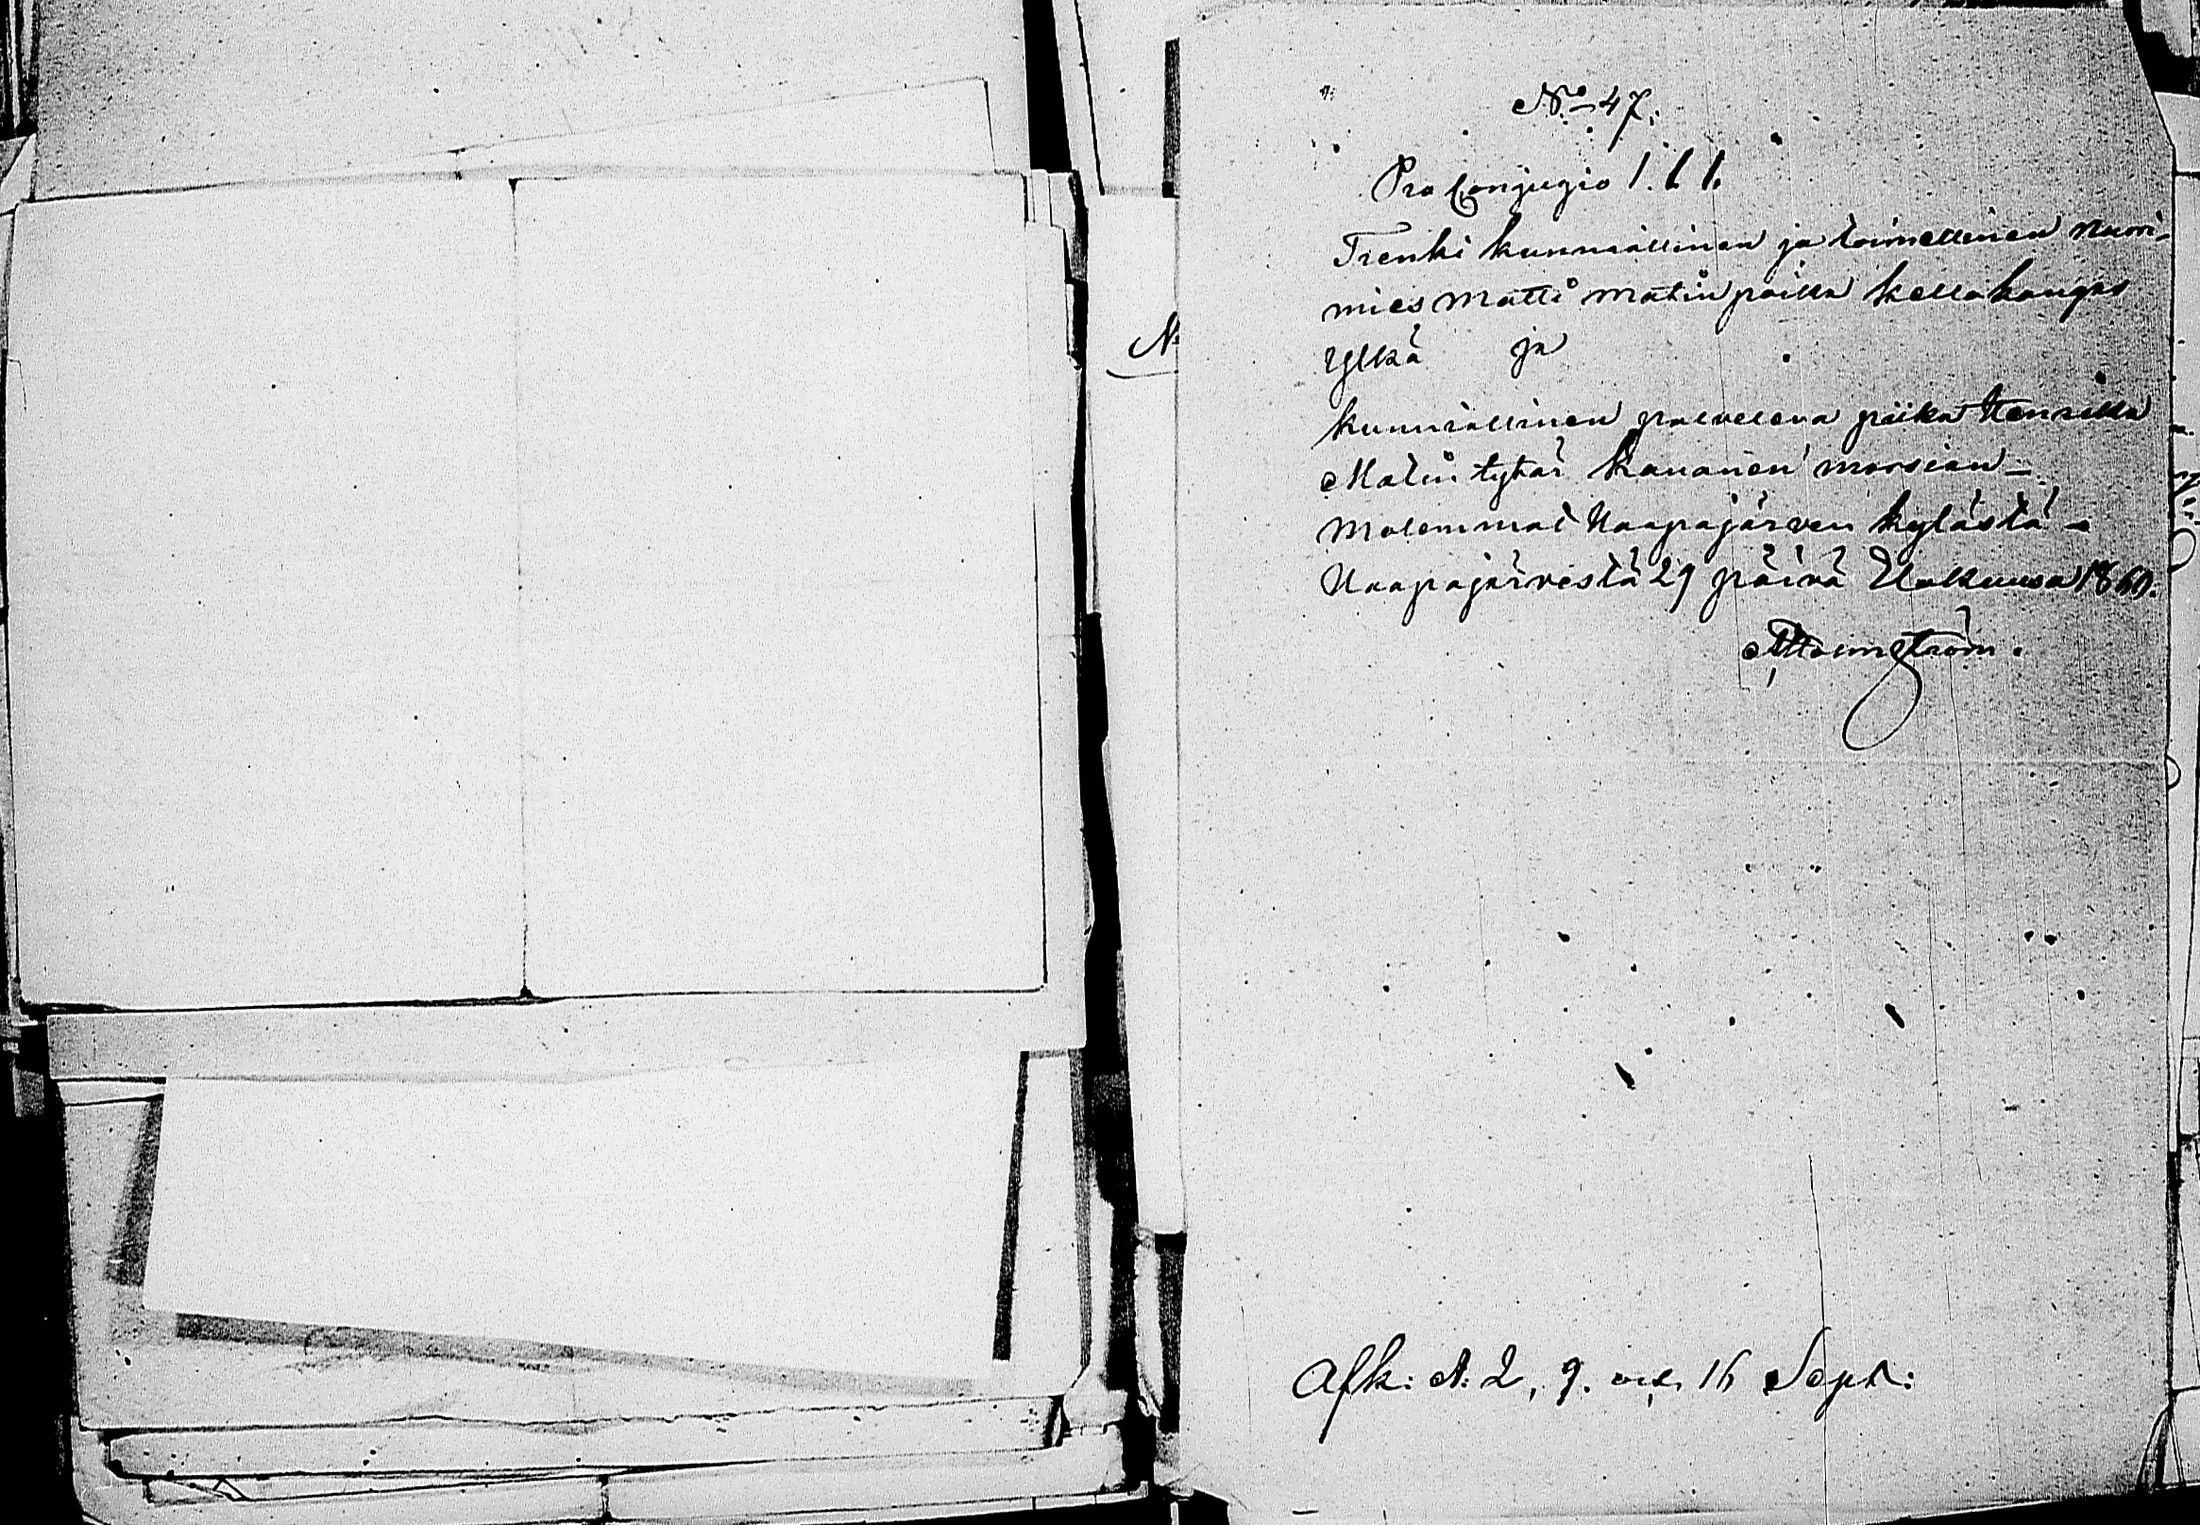 No 47.
Pro Conjugio 1. 1. 1.
Trenki kunniallinen ja toimellinen Nuori-
mies Matti Matin poika Kellokangas
Ylkä ja
kunniallinen palveleva piika Henrikka
Matin tytär Kananen morsian –
Molemmat Haapajärven kylästä –
Haapajärvestä 29 päivä Elokuusa 1860.
Holmström.
N:
Afk: d: 2, 9. och 16 Sept: